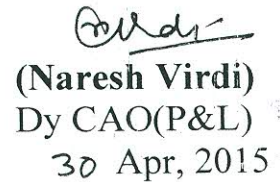 (Naresh Virdi)
Dy CAO(P&L)
30 Apr, 2015